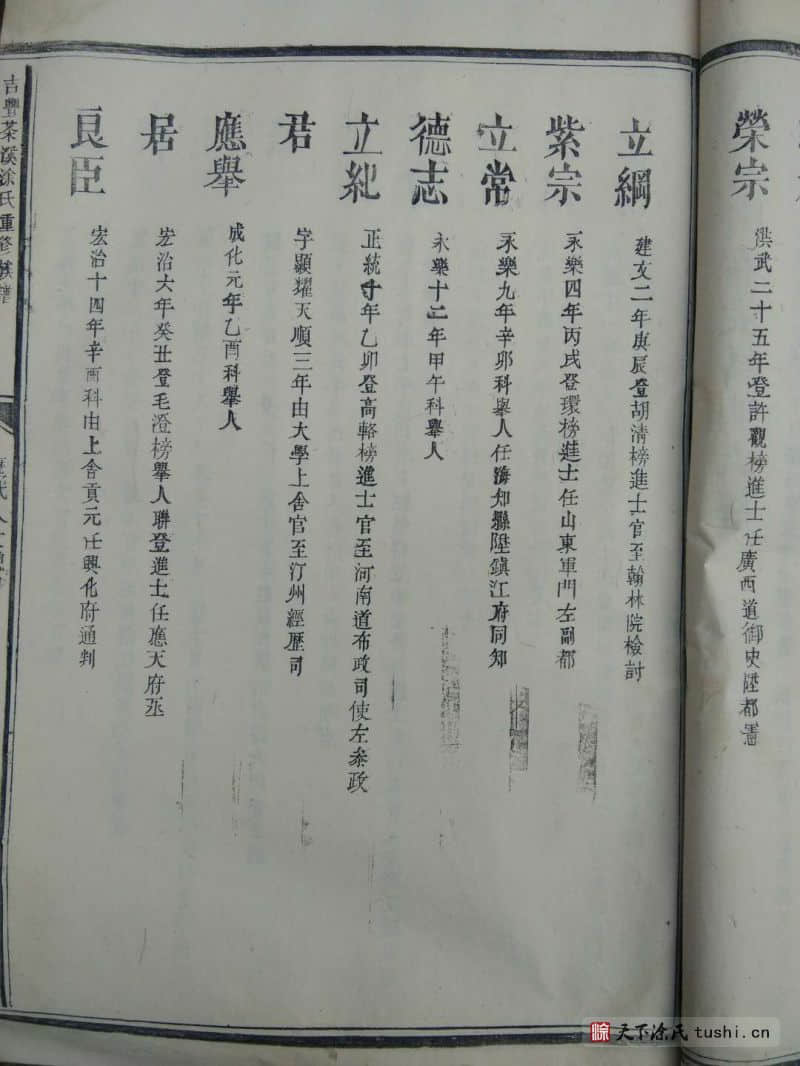 榮宗 洪武二十五年登許觀榜進士任廣西道御史陞都憲
立綱 建文二年庚辰登胡清榜進士官至翰林院檢討
紫宗 永樂四年丙戌登環榜進士任山東軍門左副都
立常 永樂九年辛卯科舉人任海知縣陞鎮江府同知
德志 永樂十二年甲午科舉人
立紀 正統十年乙卯登高輅榜進士官至河南道布政司使左叅政
君 字顯耀天順三年由大學上舍官至汀州經歷司
應舉 成化元年乙酉科舉人
居 宏治六年癸丑登毛澄榜舉人聯登進士任應天府丞
良臣 宏治十四年辛酉科由上舍貢元任興化府通判
吉豐茶溪涂氏重修族譜
天下涂氏 tushi.cn